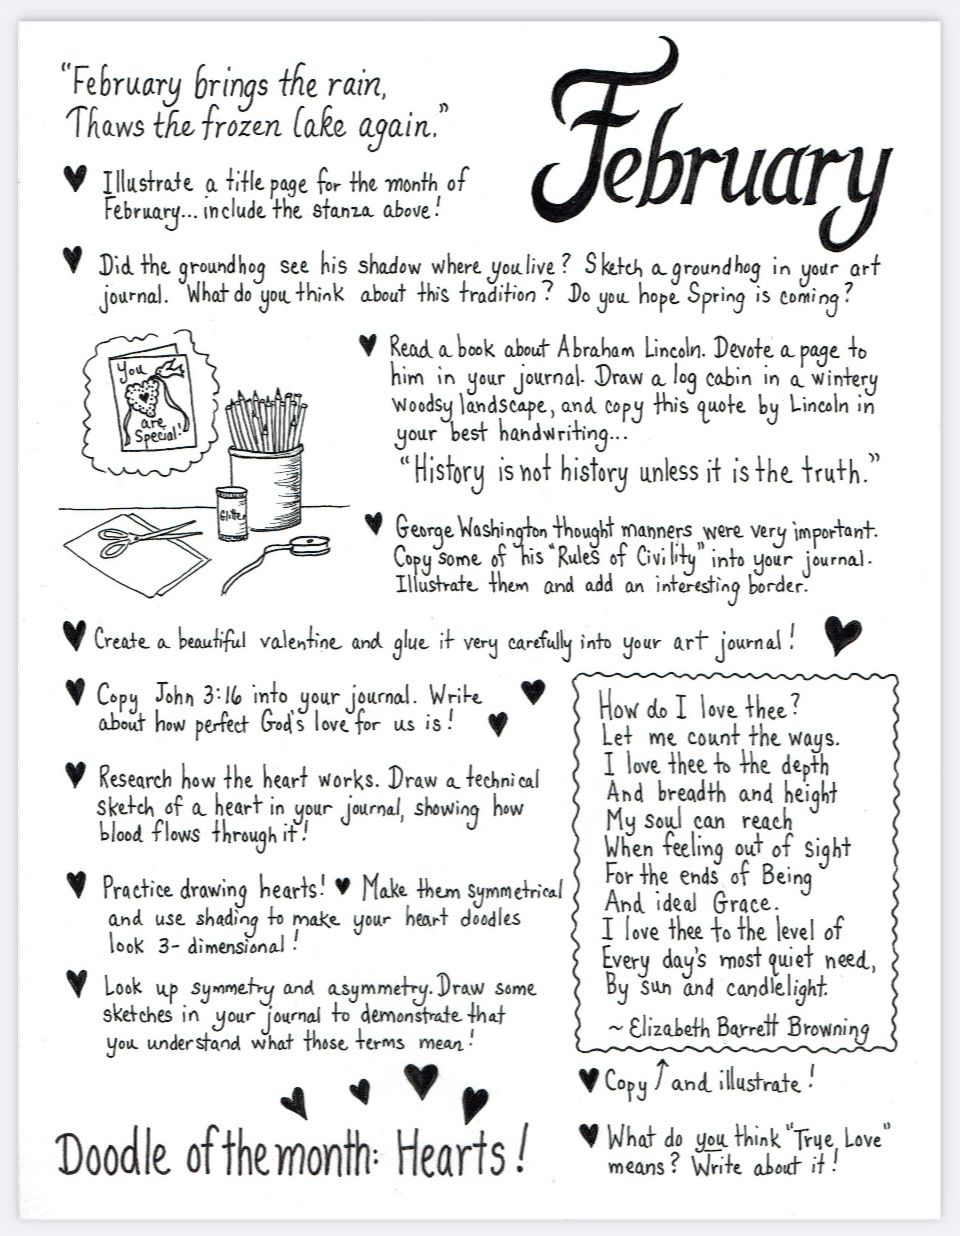 February
"February brings the rain,
Thaws the frozen lake again."
Illustrate a title page for the month of
February... include the stanza above!
Did the groundhog see his shadow where you live? Sketch a groundhog in your art
journal. What do you think about this tradition? Do you hope Spring is coming?
You
are
Special!
Glitter
Read a book about Abraham Lincoln. Devote a page to
him in your journal. Draw a log cabin in a wintery
woodsy landscape, and copy this quote by Lincoln in
your best handwriting...
"History is not history unless it is the truth."
George Washington thought manners were very important.
Copy some of his "Rules of Civility" into your journal.
Illustrate them and add an interesting border.
Create a beautiful valentine and glue it very carefully into your art journal!
Copy John 3:16 into your journal. Write
about how perfect God's love for us is!
Research how the heart works. Draw a technical
sketch of a heart in your journal, showing how
blood flows through it!
Practice drawing hearts! ♥ Make them symmetrical
and use shading to make your heart doodles
look 3-dimensional!
Look up symmetry and asymmetry. Draw some
sketches in your journal to demonstrate that
you understand what those terms mean!
Doodle of the month: Hearts!
How do I love thee?
Let me count the ways.
I love thee to the depth
And breadth and height
My soul can reach
When feeling out of sight
For the ends of Being
And ideal Grace.
I love thee to the level of
Every day's most quiet need,
By sun and candlelight.
~ Elizabeth Barrett Browning
Copy ↑ and illustrate!
What do you think "True Love"
means? Write about it!